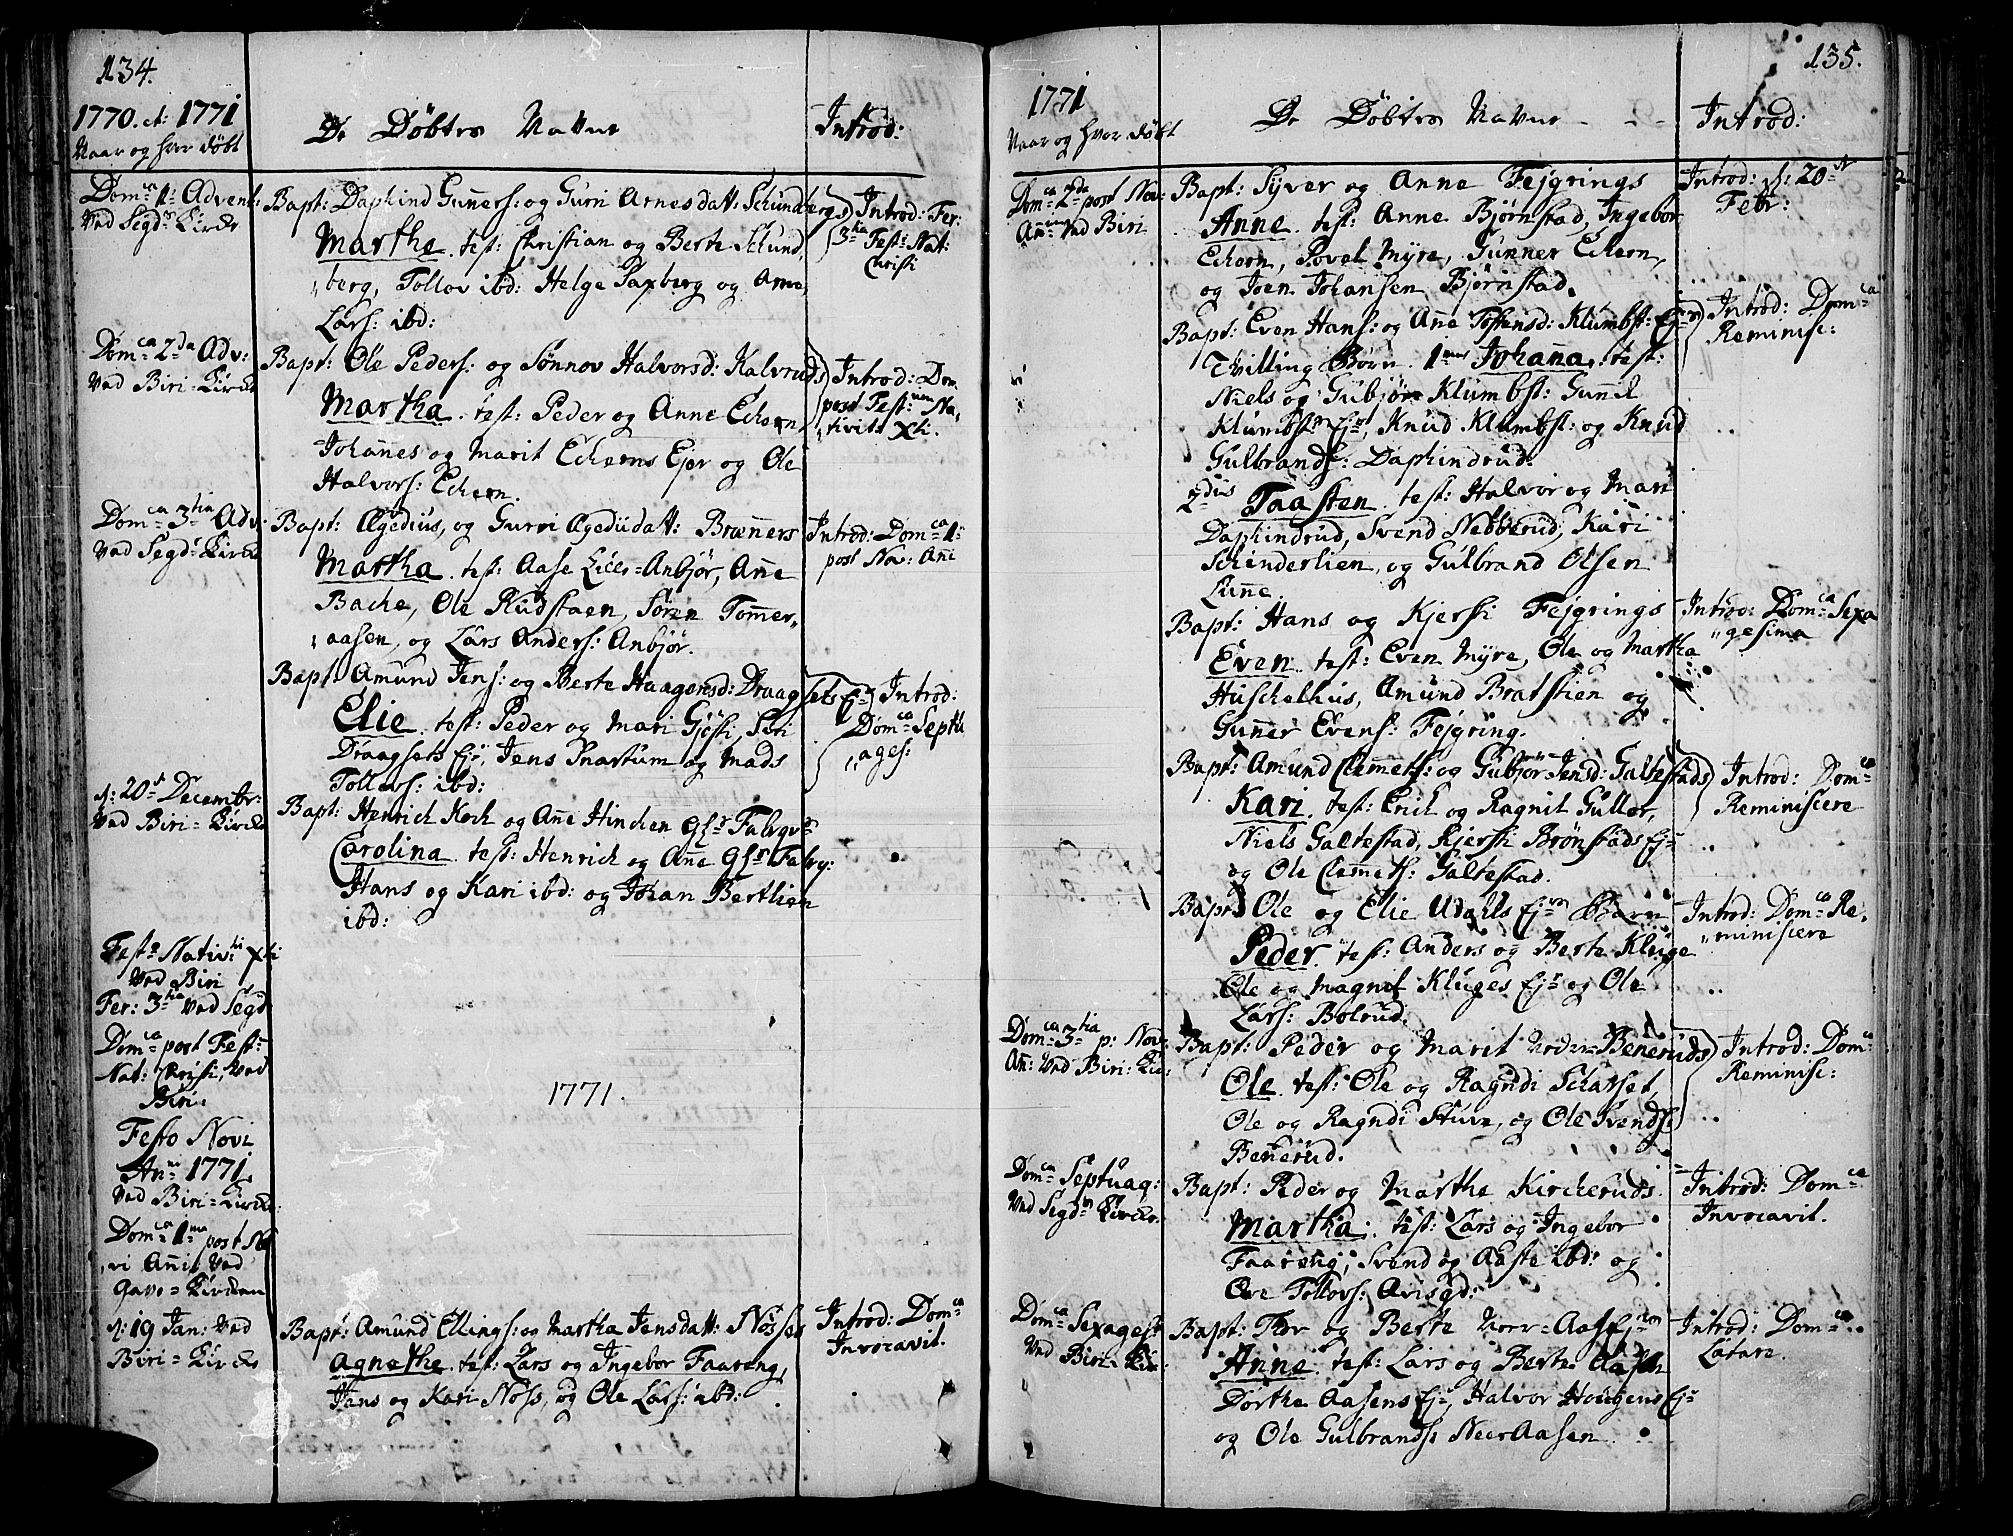 134.
1770. et: 1771
Naar og hvor døbt
De Døbtes Navne
Introd:
Dom:ca 1: Advent:
Ved Segd:s Kircke
Bapt: Daphind Guners: og Guri Arnesdatt: Schundbergs
Marthe. test: Christian og Berte Schund,
"berg, Tollov ibd: Helge Saxberg og Arne
Lars: ibd:
Introd: Fer:
3:tia Fest: Nat:
Christi
Dom:ca 2:da Adv:
Ved Biri=Kircke
Bapt: Ole Peders: og Sønnov Halvorsd: Kalvruds
Martha. test: Peder og Anne Echern,
Johannes og Marit Echerns Ejer og Ole
Halvors: Echern.
Introd: Dom.
post Fest: Na,
"tivit: Xti.
Dom:ca 3:tia Adv:
Ved Segd:s Kircke
Bapt: Ægedius, og Gurvi Ægediidatt: Bræners
Martha. test: Aase Anbjør, Ane
Bache, Ole Rudstaen, Sören Tomer,,
"aasen, og Lars Anders: Anbjør.
Introd: Dom:ca 1:
post Nov: Ani
Bapt: Amund Jens: og Berte Haagensd: Draagsets Ej:
Elie. test: Peder og Mari Gjøsti, Siri
Draagsets Ej:, Jens Snartum og Mads
Tollovs: ibd:
Introd:
Dom:ca Septu
"ages:
d: 20:d Decembr:
Ved Biri=Kircke
Bapt: Henrich Koch og Ane Hinchen
Carolina. test: Henrich og Ane
Hans og Kari ibd: og Johan Bertlien
ibd:
Fest: Nativ: Xti
Ved Biri
Fer: 3:tia Ved Segd:
Dom:ca post Fest:
Nat: Christi, Ved
Biri.
1771.
Festo Novi
An: 1771.
Ved Biri=Kircke:
Dom:ca 1:ma post No
"vi Ani Ved
Kircken
d: 19 Jan: Ved
Biri=Kircke
Bapt: Amund Ellings: og Martha Jensdatt: Nøsses
Agnethe. test: Lars og Ingebor Faareng,
Hans og Kari Nøss, og Ole Lars: ibd:
Introd: Dom:ca
Invocavit.
135.
1771
Naar og hvor døbt
De Døbtes Navne
Introd:
Dom:ca 2:da post Nov:
An: Ved Biri
Bapt: Syver og Anne Fejgrings
Anne. test: Anne Bjørnstad, Ingebor
Echern, Povel Myre, Gunner Echern,
og Joen Johansen Bjørnstad.
Introd: d: 20:d
Febr:
Bapt: Even Hans: og Ane Tostensd: Klumbst: Ej:
Tvilling Børn. 1:mus Johana. test:
Niels og Gubjør Klumbst: Gunil
Klumbst: Ej:, Knud Klumbst: og Knud
Gulbrands: Daphindrud:
2:dus Taasten. test: Halvor og Mari
Daphindrud, Svend Nebberud, Kari
Schinderlien, og Gulbrand Olsen
Lune.
Introd: Dom:ca
Reminisc:
Bapt: Hans og Kjersti Fejgrings
Even. test: Even Myre, Ole og Martha
Huschelhus, Amund Bratstien og
Guner Evens: Fejgring.
Intro: Dom:ca Sexa
"gesima
Bapt: Amund Clemets: og Gubjør Jensd: Galtestads
Kari. test: Erich og Ragnil Guller,
Niels Galtestad, Kjersti Brønstads Ej:
og Ole Clemets: Galtestad.
Introd: Dom:ca
Reminiscere
Bapt: Ole og Elie Udahls Ej: Barn
Peder. test: Anders og Berte Kluge
Ole og Magnil Kluges Ej: og Ole
Lars: Bolrud.
Introd: Dom:ca Re,
"miniscere
Dom:ca 3:tia p: Nov:
An: Ved Biri: Kir:
Bapt: Peder og Marit Beneruds
Ole. test: Ole og Ragndi Schatset,
Ole og Ragndi Stuve, og Ole Svends:
Benerud.
Introd: Dom:ca
Reminisc:
Dom:ca Septuag:
Ved Segd:s Kircke.
Bapt: Peder og Marthe Kircheruds.
Martha. test: Lars og Ingebor
Faareng, Svend og Aaste ibd: og
Ove Tollovs: Avisgd:
Introd: Dom:ca
Invocavit.
Dom:ca Sexagest
Ved Biri=Kir:
Bapt: Thor og Berte Neer=Aas Ej:
Anne. test: Lars og Berthe Aasen
Dorthe Aasens Ej:, Halvor Hougens Ej:
og Ole Gulbrands: NeerAasen.
Introd: Dom:ca
Lætare.